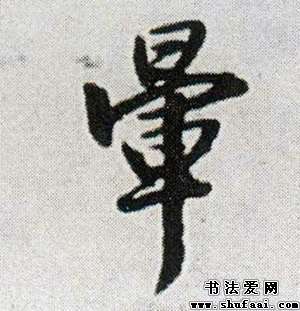 暈
书法爱网
www.shufaai.com